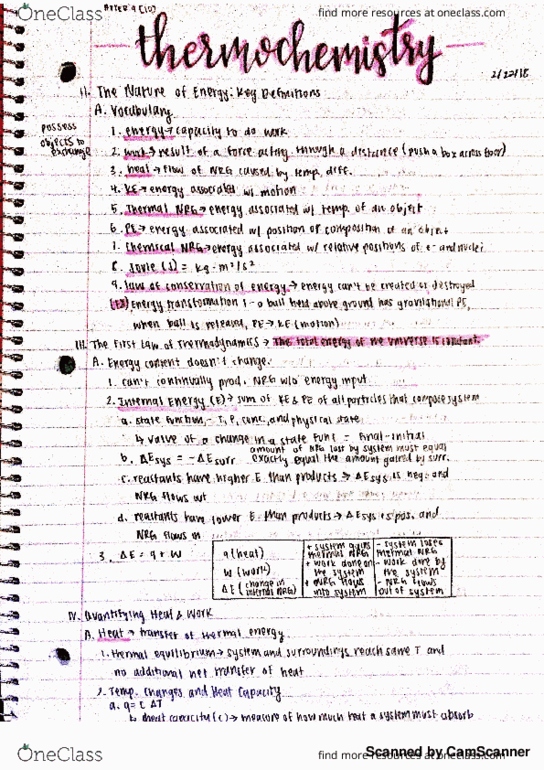 OneClass
find more resources at oneclass.com
thermochemistry
2/22/18
II. The Nature of Energy: Key Definitions
A. Vocabulary
possess
objects to
exchange
1. energy→ capacity to do work
2. work→ result of a force acting through a distance (push a box across floor)
3. heat→ flow of NRG caused by temp. diff.
4. KE→ energy associated w/ motion
5. Thermal NRG→ energy associated w/ temp. of an object
6. PE→ energy associated w/ position or composition of an object
7. Chemical NRG→ energy associated w/ relative positions of e- and nuclei
8. Joule (J) = kg·m²/s²
9. law of conservation of energy→ energy can't be created or destroyed
Energy transformation 1 - a ball held above ground has gravitational PE,
when ball is released, PE→ KE (motion)
III. The First Law of Thermodynamics → The total energy of the universe is constant.
A. Energy content doesn't change.
1. can't continually prod. NRG w/o energy input
2. Internal Energy (E)→ sum of KE & PE of all particles that compose system
a. state function - T, P, conc., and physical state
↳ value of a change in a state func = final-initial
b. ΔEsys = -ΔEsurr
amount of NRG lost by system must equal
exactly equal the amount gained by surr.
c. reactants have higher E. than products → ΔEsys is neg. and
NRG flows out
d. reactants have lower E. than products → ΔEsys is pos. and
NRG flows in
3. ΔE = q + w
q (heat) + system gains thermal NRG - system loses thermal NRG
W (work) + work done on the system - work done by the system
ΔE (change in internal NRG) + NRG flows into system - NRG flows out of system
IV. Quantifying Heat & Work
A. Heat → transfer of thermal energy
1. thermal equilibrium→ system and surroundings reach same T and
no additional net transfer of heat
2. Temp. Changes and Heat Capacity
a. q = C ΔT
↳ heat capacity (C)→ measure of how much heat a system must absorb
OneClass
find more resources at oneclass.com
Scanned by CamScanner